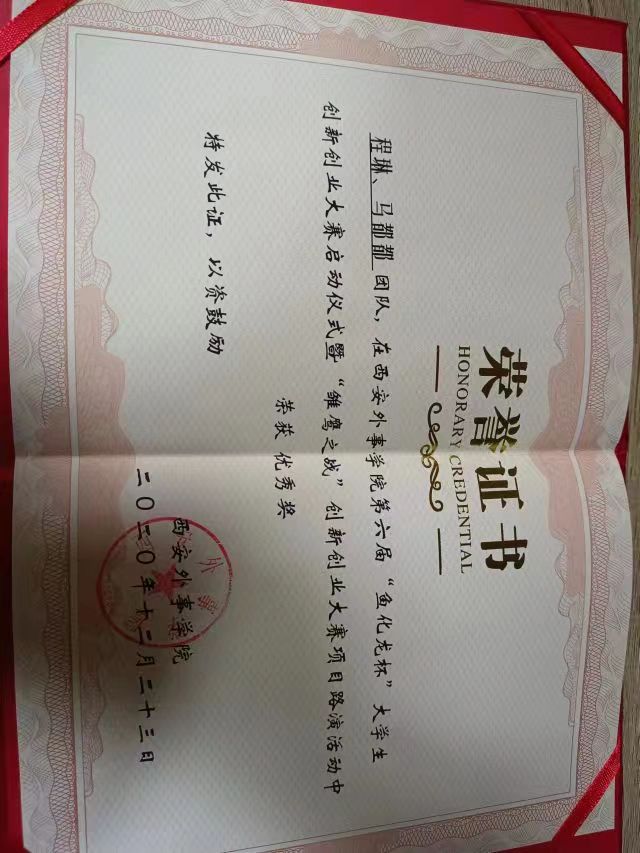 荣誉证书
HONORARY CREDENTIAL
程琳、马都都团队，在西安外事学院第六届“鱼化龙杯”大学生
创新创业大赛启动仪式暨“雏鹰之战”创新创业大赛项目路演活动中
荣获 优秀奖
特发此证，以资鼓励
西安外事学院
二〇二〇年十二月二十三日